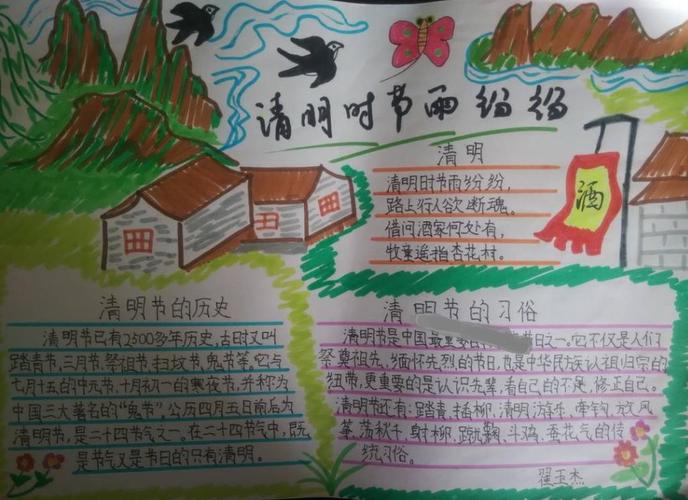 清明时节雨纷纷
清明
清明时节雨纷纷，
路上行人欲断魂。
借问酒家何处有，
牧童遥指杏花村。
酒
清明节的历史
清明节已有2500多年历史，古时又叫
踏青节、三月节、祭祖节、扫坟节、鬼节等。它与
七月十五的中元节、十月初一的寒夜节，并称为
中国三大著名的“鬼节”，公历四月五日前后为
清明节，是二十四节气之一。在二十四节气中，既
是节气又是节日的只有清明。
清明节的习俗
清明节是中国最重要的节日之一。它不仅是人们
祭奠祖先、缅怀先烈的节日，也是中华民族认祖归宗的
纽带，更重要的是认识先辈，看自己的不足，修正自己。
清明节还有：踏青、插柳、清明放生、牵钩、放风
筝、荡秋千、射柳、蹴鞠、斗鸡、蚕花气的传
统习俗。
翟玉杰